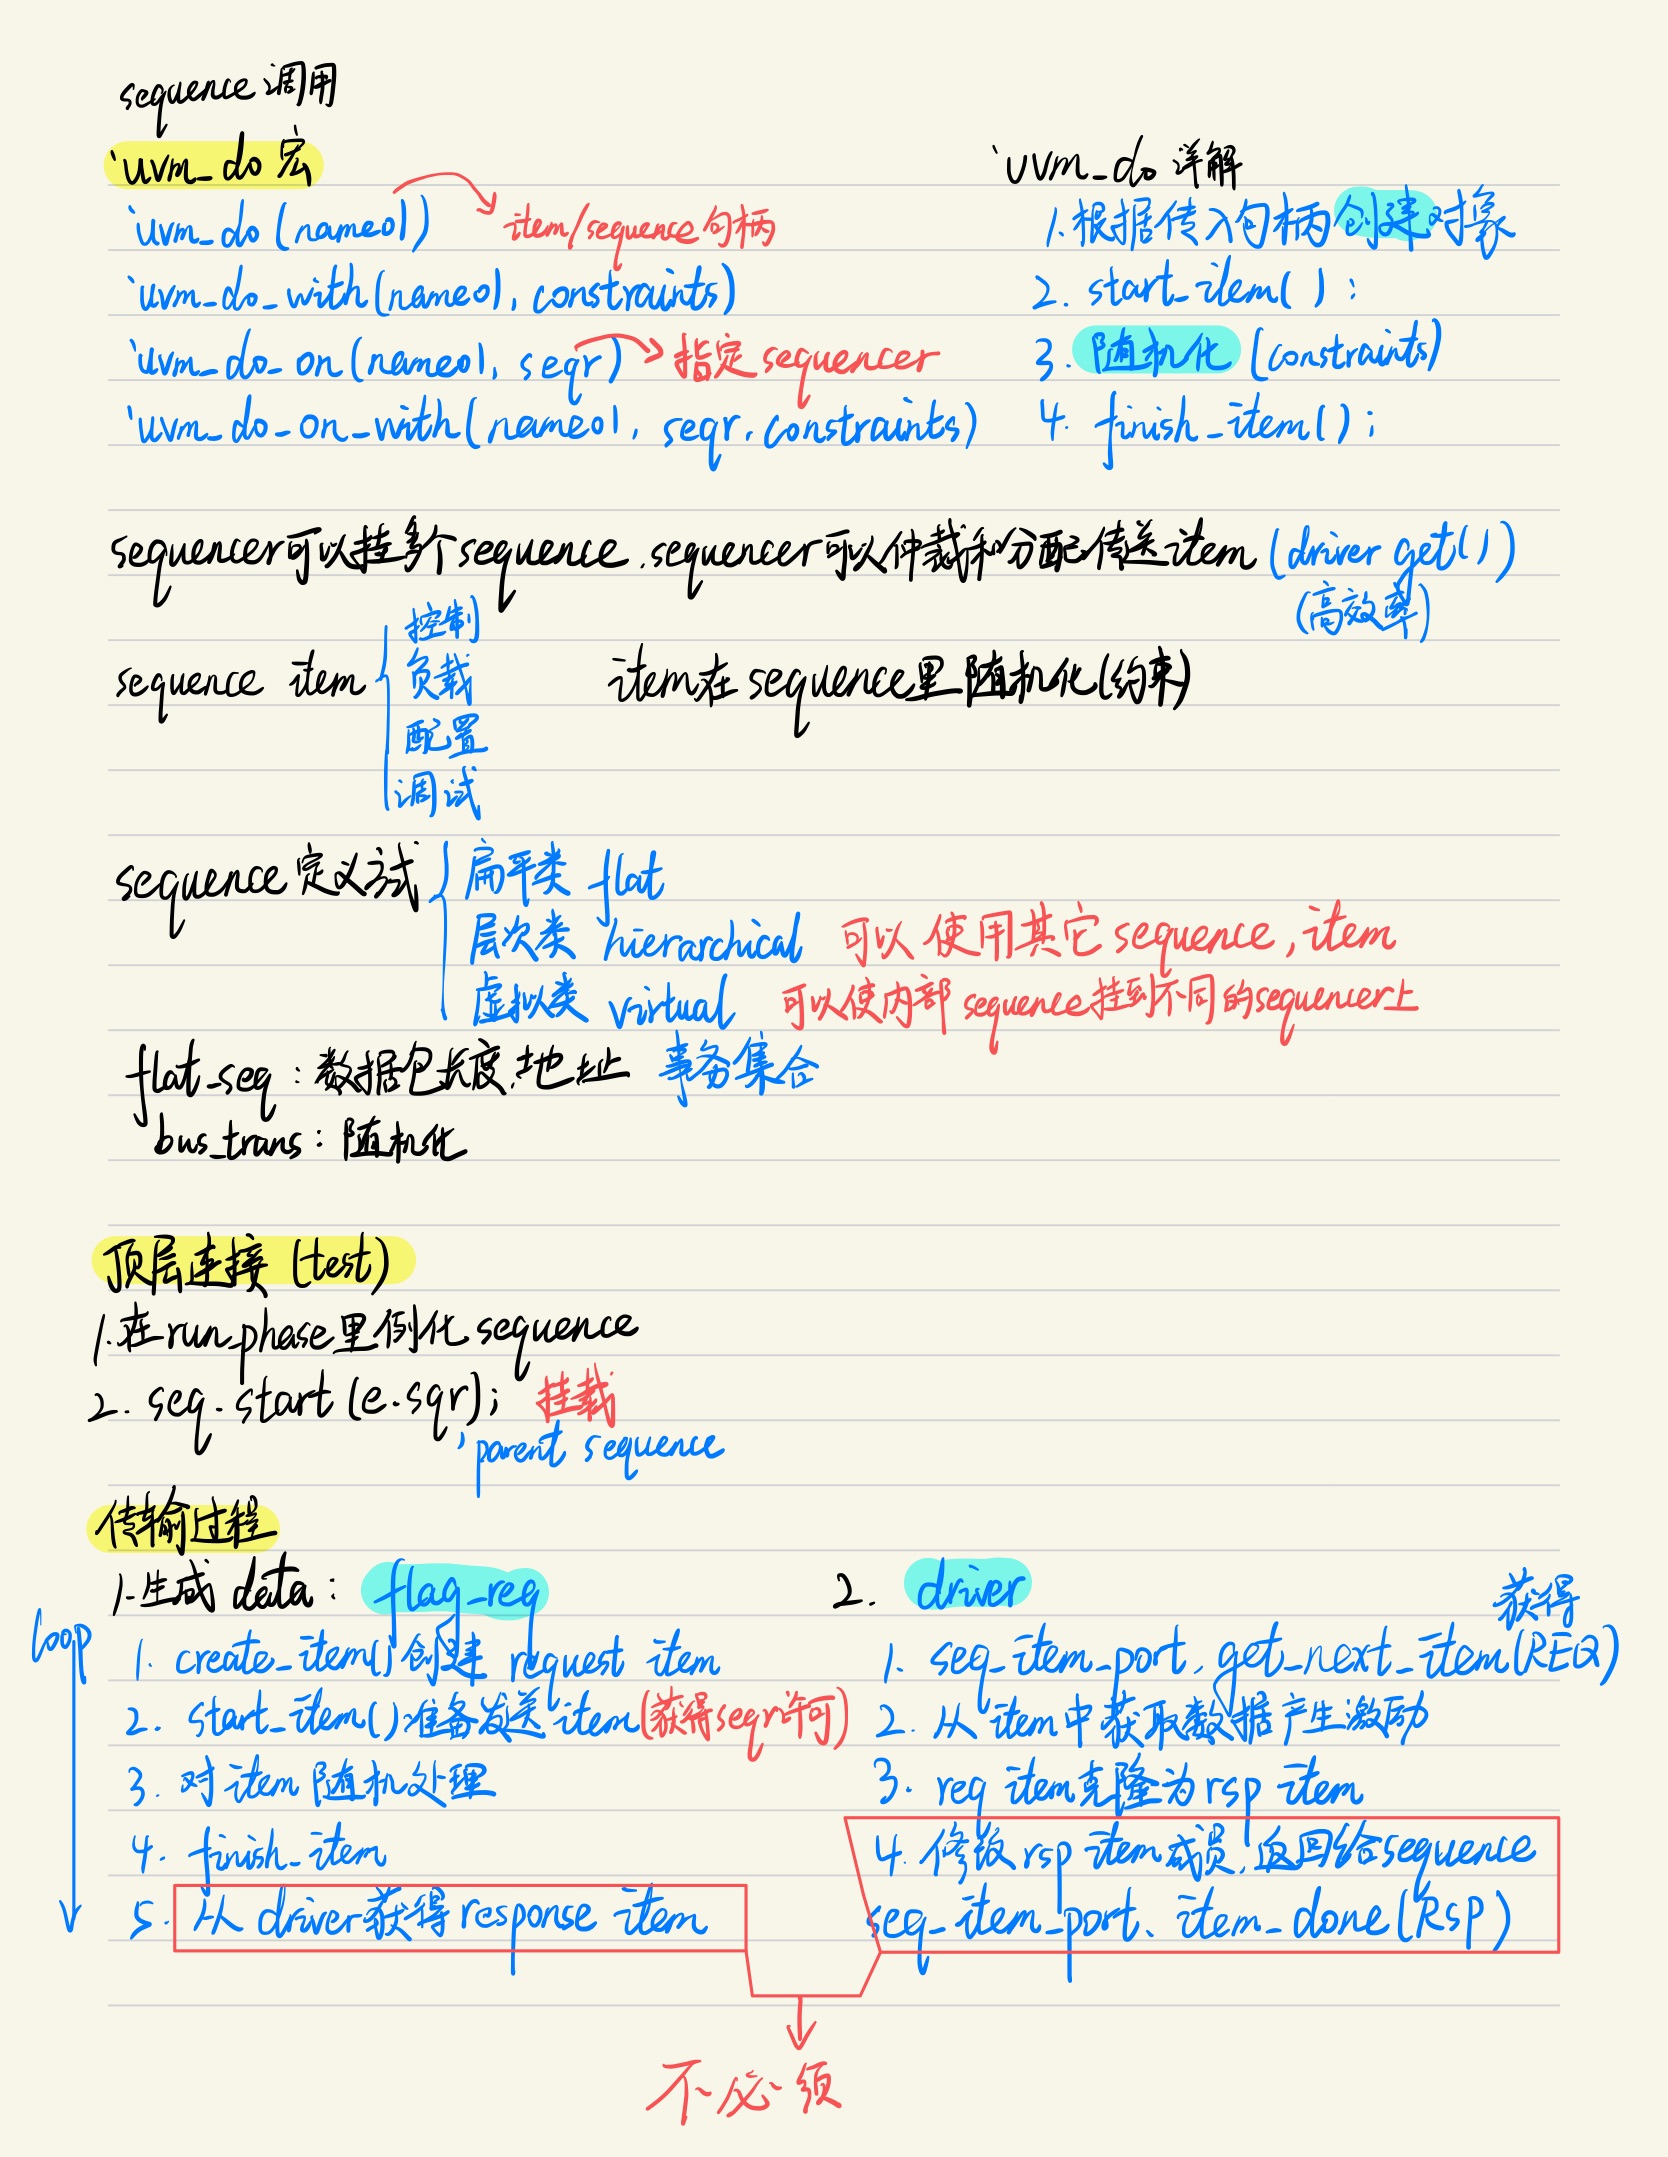 sequence 调用
`uvm_do 宏
`uvm_do (name01)
item/sequence 句柄
`uvm_do_with(name01, constraints)
`uvm_do_on(name01, seqr)
指定 sequencer
`uvm_do_on_with(name01, seqr, constraints)
`uvm_do 详解
1.根据传入句柄创建对象
2. start_item( );
3. 随机化 (constraints)
4. finish_item( );
sequencer可以挂多个sequence,sequencer可以仲裁和分配传送item (driver get( ))
(高效率)
sequence item
控制
负载
配置
调试
item在 sequence里随机化(约束)
sequence定义方式
扁平类 flat
层次类 hierarchical 可以使用其它sequence, item
虚拟类 virtual 可以使内部sequence挂到不同的sequencer上
flat_seq: 数据包长度,地址 事务集合
bus_trans: 随机化
顶层连接 (test)
1.在run_phase里例化 sequence
2. seq.start (e.sqr); 挂载
, parent sequence
传输过程
1.生成 data: flag_req
loop
1. create_item()创建 request item
2. start_item():准备发送item(获得seqr许可)
3. 对item随机处理
4. finish_item
5. 从 driver获得response item
2. driver
获得
1. seq_item_port. get_next_item(REQ)
2. 从 item中获取数据产生激励
3. req item克隆为rsp item
4. 修改rsp item成员,返回给sequence
seq_item_port. item_done(RSP)
不必须